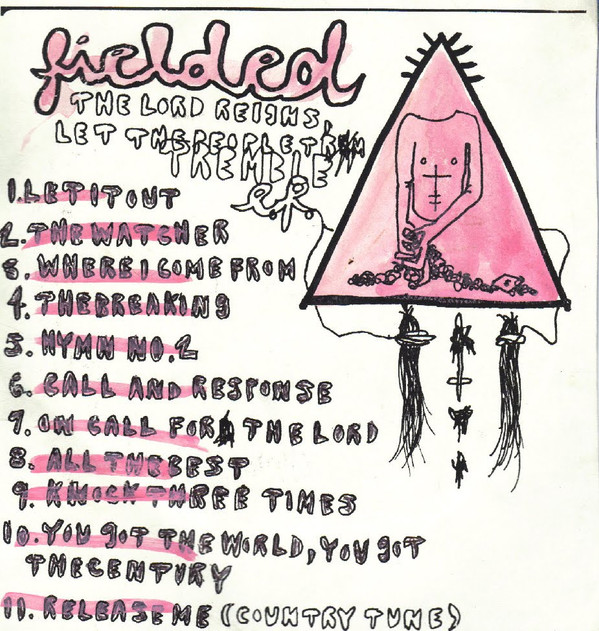 fielded
THE LORD REIGNS,
LET THE PEOPLE TREM
TREMBLE
e.p.
1. LET IT OUT
2. THE WATCHER
3. WHERE I COME FROM
4. THE BREAKING
5. HYMN NO. 2
6. CALL AND RESPONSE
7. ON CALL FOR THE LORD
8. ALL THE BEST
9. KNOCK THREE TIMES
10. YOU GOT THE WORLD, YOU GOT
THE CENTURY
11. RELEASE ME (COUNTRY TUNE)